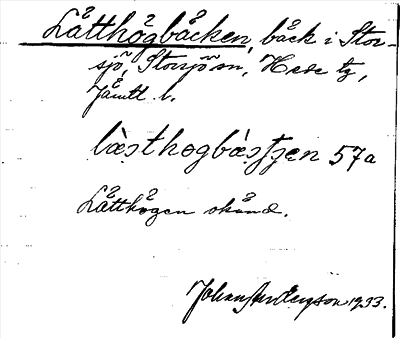 Låtthögbäcken, bäck i Stor-
sjö, Storsjö sn, Hede tg,
Jämtl l.
læ̀ṣthogbæ̀ṣt̠ṣen 57a
Låtthögen okänd.
Johan Anderson 1933.